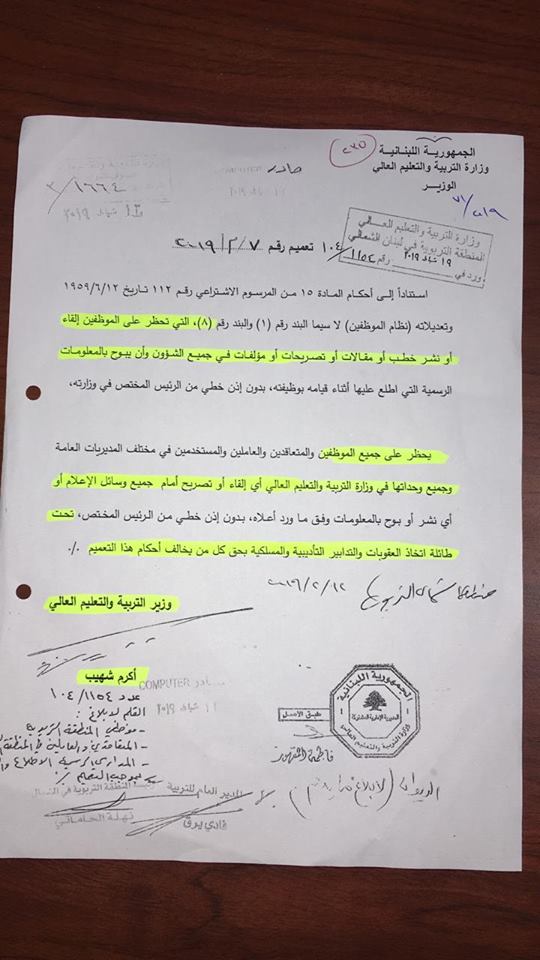 ٢٣٥
الجمهورية اللبنانية
وزارة التربية والتعليم العالي
الوزير
صادر COMPUTER
٣/١٦٦٤
١٢ شباط ٢٠١٩
وزارة التربية والتعليم العالي
المنطقة التربوية في لبنان الشمالي
ورد في ١٩ شباط ٢٠١٩ رقم ١٠٤/١١٥٤
تعميم رقم ٢٠١٩/٢/٧
استناداً إلى أحكام المادة ١٥ من المرسوم الاشتراعي رقم ١١٢ تاريخ ١٩٥٩/٦/١٢
وتعديلاته (نظام الموظفين) لا سيما البند رقم (١) والبند رقم (٨)، التي تحظر على الموظفين إلقاء
أو نشر خطب أو مقالات أو تصريحات أو مؤلفات في جميع الشؤون وأن يبوح بالمعلومات
الرسمية التي اطلع عليها أثناء قيامه بوظيفته، بدون إذن خطي من الرئيس المختص في وزارته،
يحظر على جميع الموظفين والمتعاقدين والعاملين والمستخدمين في مختلف المديريات العامة
وجميع وحداتها في وزارة التربية والتعليم العالي أي إلقاء أو تصريح أمام جميع وسائل الإعلام أو
أي نشر أو بوح بالمعلومات وفق ما ورد أعلاه، بدون إذن خطي من الرئيس المختص، تحت
طائلة اتخاذ العقوبات والتدابير التأديبية والمسلكية بحق كل من يخالف أحكام هذا التعميم ./.
٢٠١٩/٢/١٢
وزير التربية والتعليم العالي
أكرم شهيب
صادر COMPUTER
عدد ١٠٤/١١٥٤
١٢ شباط ٢٠١٩
- موظفي المنطقة التربوية
- المتعاقدين والعاملين في المنطقة
- المدارس الرسمية للاطلاع
الجمهورية اللبنانية
وزارة التربية والتعليم العالي
طبق الأصل
المدير العام للتربية
فادي يرق
رئيسة المنطقة التربوية في الشمال
نهلة الحاماتي